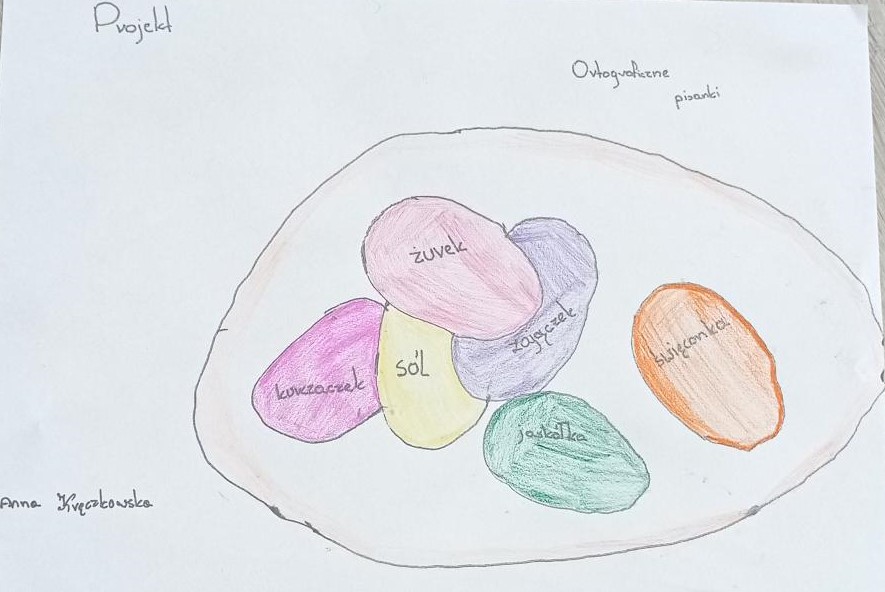 Projekt
Ortograficzne
pisanki
żurek
zajączek
święconka
sól
kurczaczek
jaskółka
Anna Kręczkowska